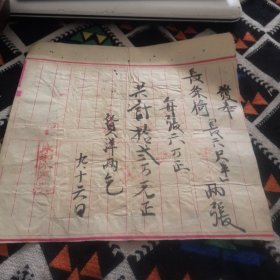 發奉
長条椅 長六尺半 兩張
每張六万正
共計拾弍万元正
貨洋兩乞
九十六日